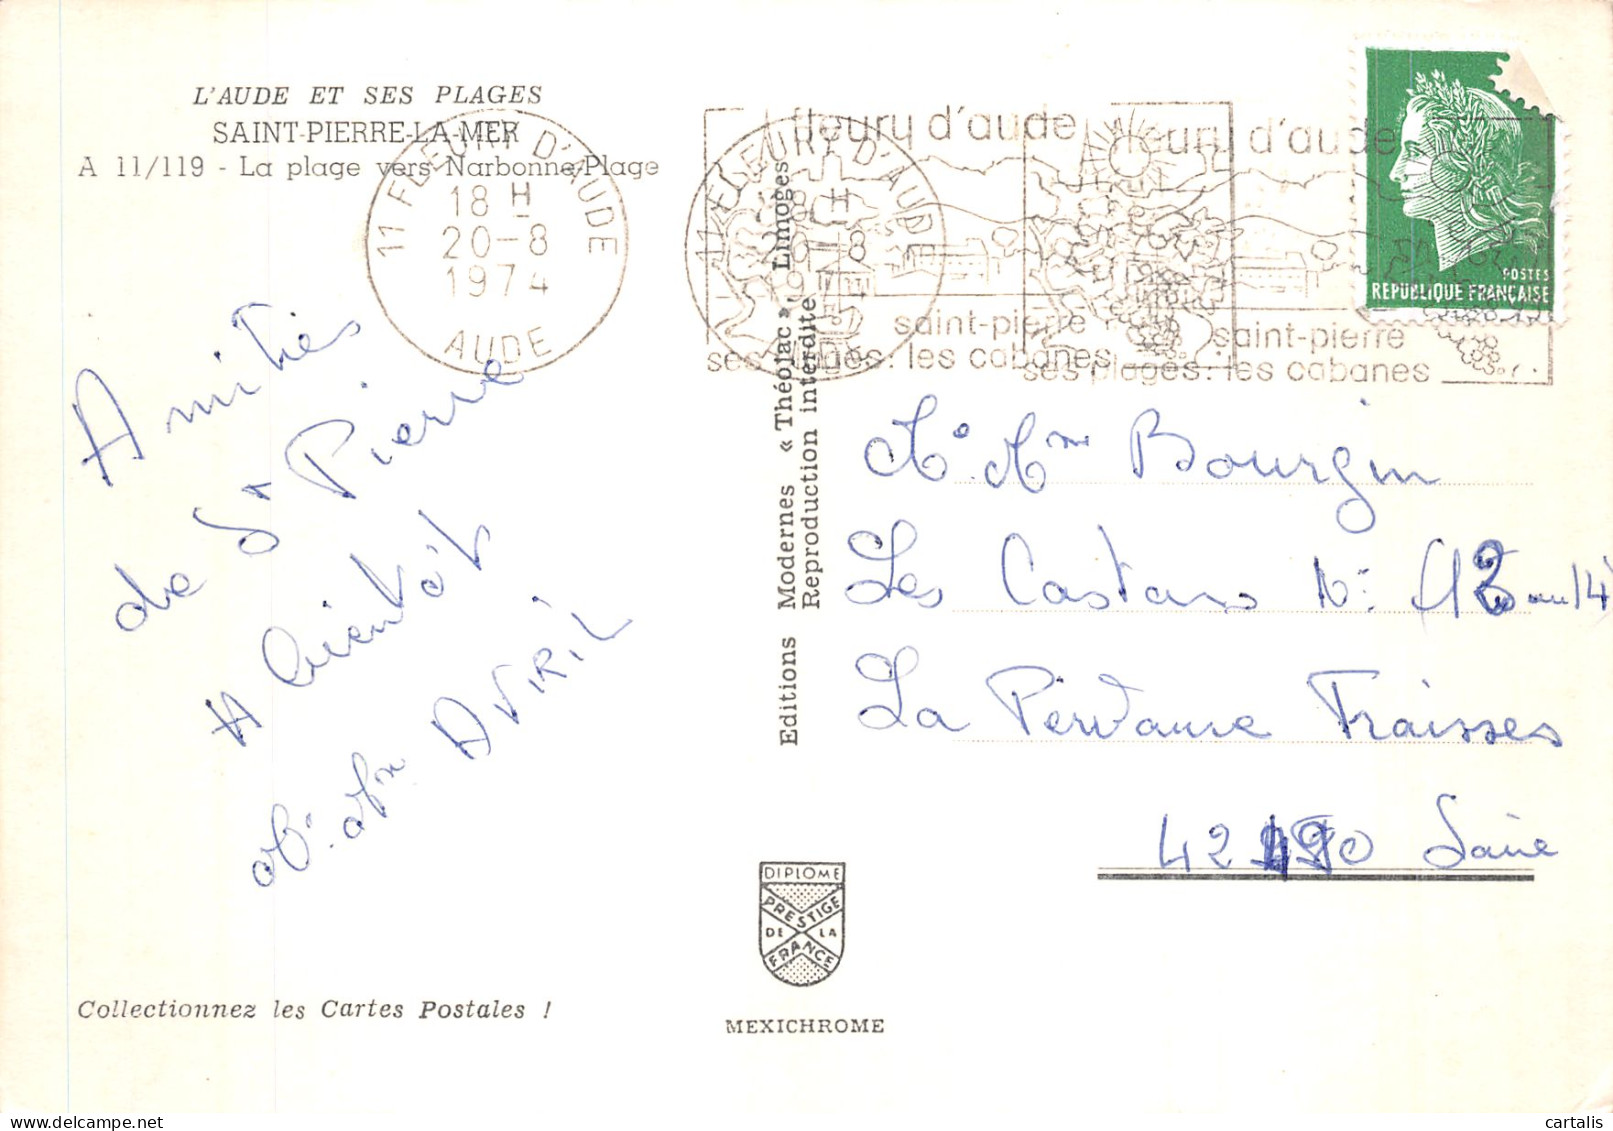 L'AUDE ET SES PLAGES
SAINT-PIERRE-LA-MER
A 11/119 - La plage vers Narbonne-Plage
11 FLEURY D'AUDE
18 H
20-8
1974
AUDE
11 FLEURY D'AUDE
18 H
20-8
1974
AUDE
fleury d'aude
saint-pierre
ses plages: les cabanes
fleury d'aude
saint-pierre
ses plages: les cabanes
POSTES
REPUBLIQUE FRANÇAISE
Amitiés
de St Pierre
A bientôt
M. Mme AVRIL
Editions Modernes « Théojac » Limoges
Reproduction interdite
Mr Mme Bourgin
Les Castors N: 12 au 14
La Perdance Fraisses
42490 Loire
DIPLOME
PRESTIGE
DE LA
FRANCE
MEXICHROME
Collectionnez les Cartes Postales !
cartalis